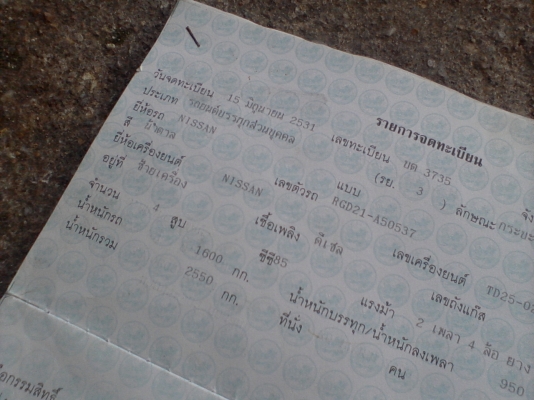 รายการจดทะเบียน
วันจดทะเบียน 15 มิถุนายน 2531 เลขทะเบียน บด 3735
ประเภท รถยนต์บรรทุกส่วนบุคคล (รย. 3 ) ลักษณะ กระบะ
ยี่ห้อรถ NISSAN แบบ
สี น้ำตาล เลขตัวรถ RGD21-A50537
ยี่ห้อเครื่องยนต์ NISSAN เลขเครื่องยนต์ TD25-0
อยู่ที่ ซ้ายเครื่อง เชื้อเพลิง ดีเซล เลขถังแก๊ส
จำนวน 4 สูบ ซีซี85 แรงม้า 2 เพลา 4 ล้อ ยาง
น้ำหนักรถ 1600 กก. น้ำหนักบรรทุก/น้ำหนักลงเพลา 950
น้ำหนักรวม 2550 กก. ที่นั่ง คน
อกรรมสิทธิ์